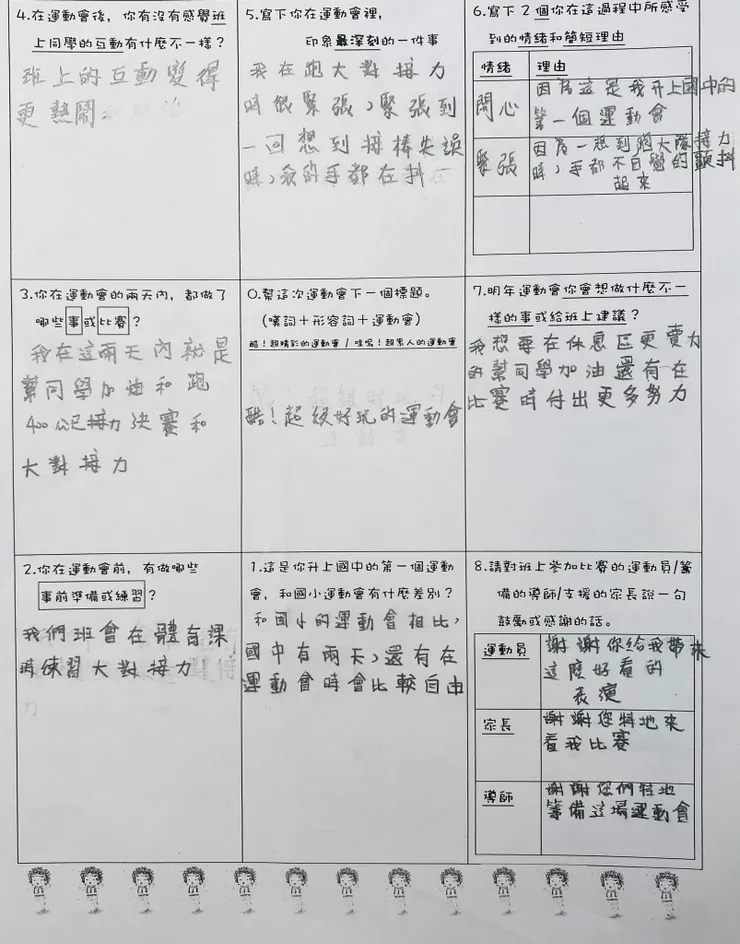 4.在運動會後，你有沒有感覺班
上同學的互動有什麼不一樣？
班上的互動變得
更熱鬧
5.寫下你在運動會裡，
印象最深刻的一件事
我在跑大對接力
時很緊張，緊張到
一回想到接棒失誤
時，我的手都在抖
6.寫下2個你在這過程中所感受
到的情緒和簡短理由
情緒
理由
開心
因為這是我升上國中的
第一個運動會
緊張
因為一想到跑大隊接力
時，手都不自覺的顫抖
起來
3.你在運動會的兩天內，都做了
哪些事或比賽？
我在這兩天內就是
幫同學加油和跑
400公尺接力決賽和
大對接力
0.幫這次運動會下一個標題。
(嘆詞＋形容詞＋運動會)
酷！超精彩的運動會／哇嗚！超累人的運動會
酷！超級好玩的運動會
7.明年運動會你會想做什麼不一
樣的事或給班上建議？
我想要在休息區更賣力
的幫同學加油還有在
比賽時付出更多努力
2.你在運動會前，有做哪些
事前準備或練習？
我們班會在體育課
時練習大對接力
1.這是你升上國中的第一個運動
會，和國小運動會有什麼差別？
和國小的運動會相比，
國中有兩天，還有在
運動會時會比較自由
8.請對班上參加比賽的運動員/籌
備的導師/支援的家長說一句
鼓勵或感謝的話。
運動員
謝謝你給我帶來
這麼好看的
表演
家長
謝謝您特地來
看我比賽
導師
謝謝您們特地
籌備這場運動會